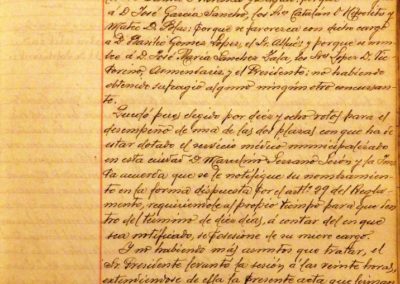 á D. José García Sancho, los Sres Catalán D. Hipólito y
Matíe D. Polus: porque se favorezca con dicho cargo
á D. Basilio Gomez Lopez, el Sr. Alfaro; y porque se nombre
á D. José María Sanchez Sala, los Sres Lopez D. Teo
y el Presidente; no habiendo
obtenido sufragio alguno ningún otro concursan
te.
Quedó pues elegido por diez y ocho votos para el
desempeño de una de las dos plazas con que ha de
estar dotado el servicio médico municipalizado
en esta ciudad D. Marcelino Serrano y la Junta
acuerda que se le notifique su nombramien
to en la forma dispuesta por el artº 39 del Regla
mento, requiriéndole al propio tiempo para que den
tro del término de diez días, á contar del en que
sea notificado, se posesione de su nuevo cargo.
Y no habiendo más asuntos que tratar, el
Sr. Presidente levantó la sesión á las veinte horas,
extendiéndose de ella la presente acta que firman